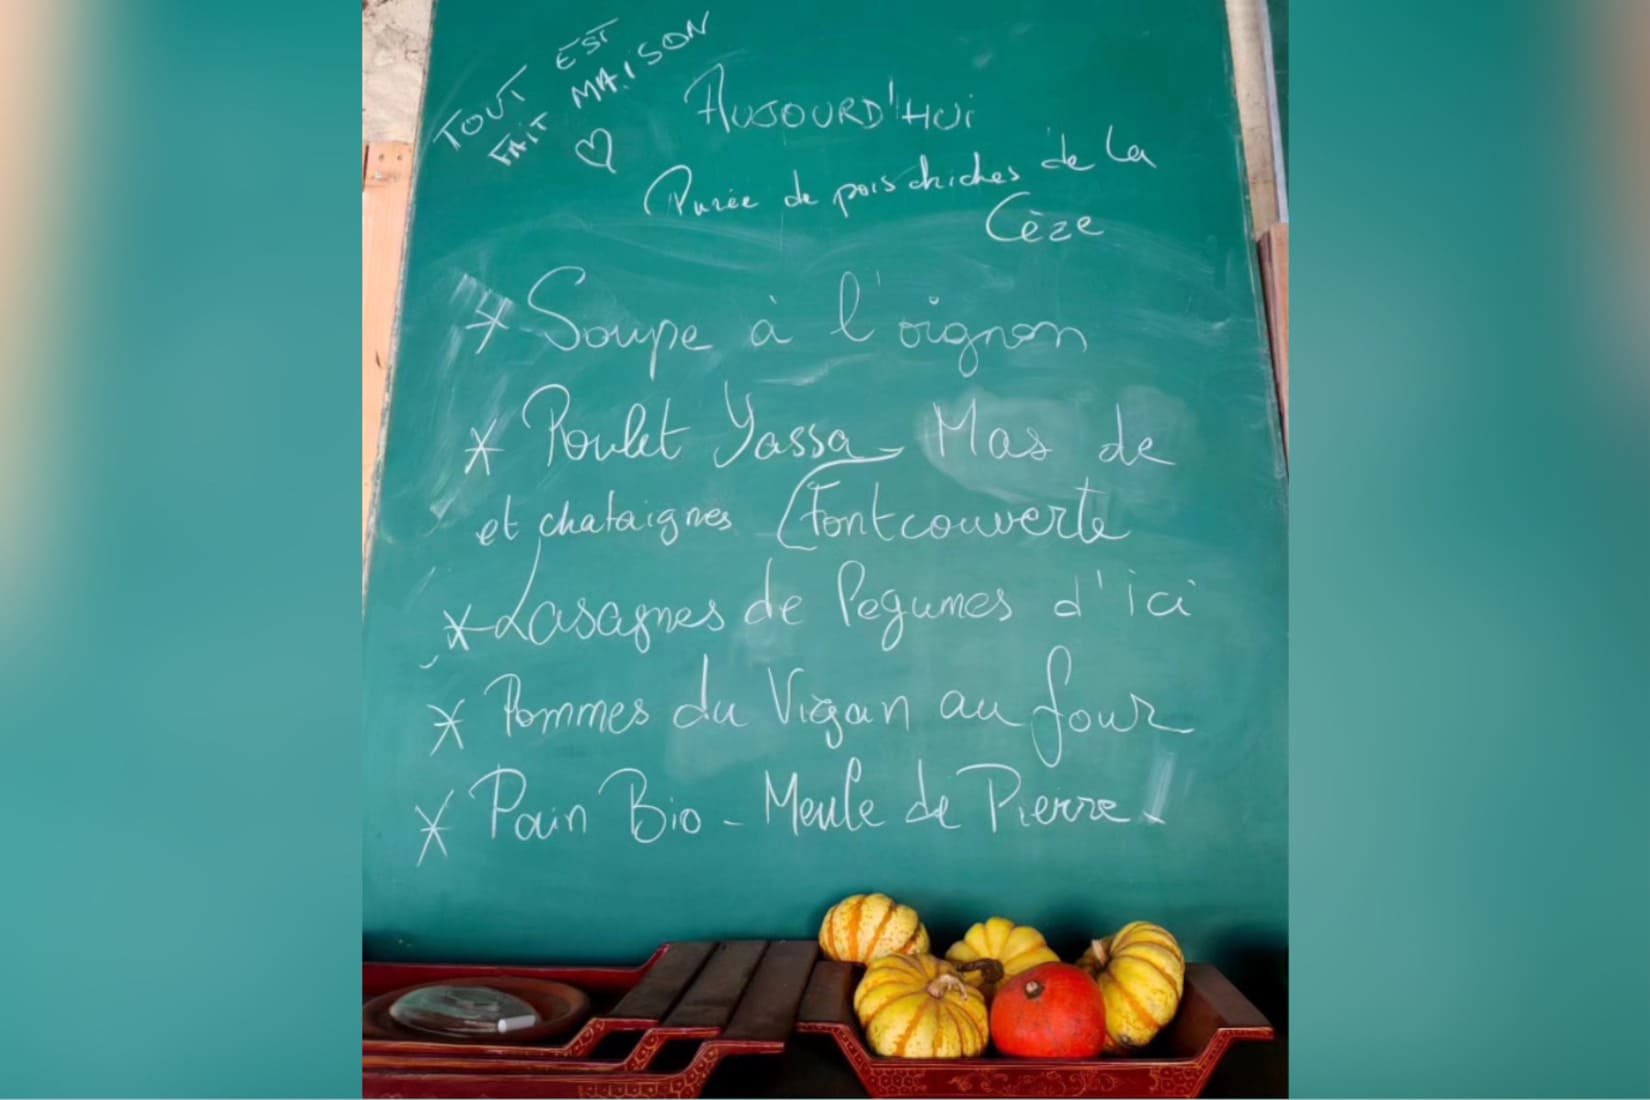 TOUT EST
FAIT MAISON
♡
AUJOURD'HUI
Purée de pois chiches de la
Cèze
* Soupe à l'oignon
* Poulet Yassa - Mas de
et chataignes Fontcouverte
* Lasagnes de légumes d'ici
* Pommes du Vigan au four
* Pain Bio - Meule de Pierre.